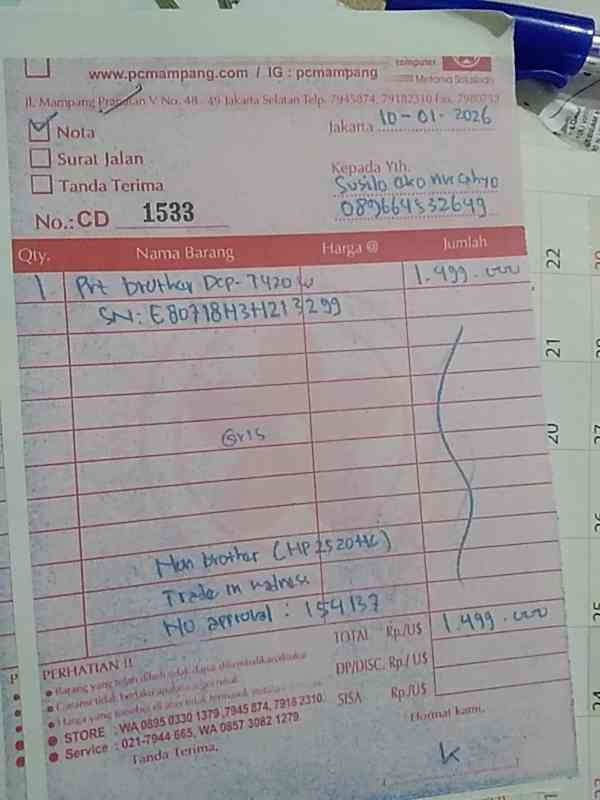 computer
www.pcmampang.com / IG : pcmampang
Jl. Mampang Prapatan V No. 48 - 49 Jakarta Selatan Telp. 7945874, 79182310 Fax. 7980733
Nota
Jakarta 10-01-2026
Surat Jalan
Kepada Yth.
Tanda Terima
Susilo eko nurcahyo
089664532649
No.: CD 1533
Qty. Nama Barang Harga @ Jumlah
1 Prt brother Dcp-T420w 1.499.000
SN: E80718H3H213299
Qris
Non brother (HP 2520HC)
Trade in madness
No approval : 154137
TOTAL Rp./U$ 1.499.000
DP/DISC. Rp./U$
SISA Rp/U$
PERHATIAN !!
Barang yang telah dibeli tidak dapat
Garansi tidak berlaku apabila segel rusak
Harga yang tersebut di atas tidak termasuk
STORE : WA 0895 0330 1379, 7945 874, 7918 2310.
Service : 021-7944 665, WA 0857 3082 1279
Tanda Terima,
Hormat kami,